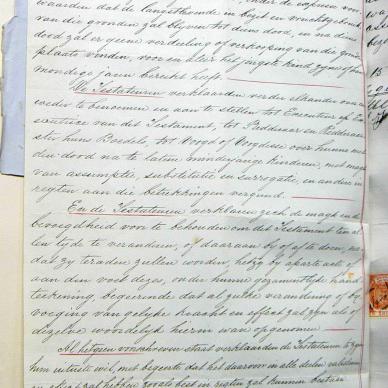 waarden dat de langstlevende in bezit en vruchtgebruik
van die gronden zal blyven tot diens dood, en na diens
dood zal er geene verdeeling of verkooping van die gronden
plaats vinden, voor en aleer het jongste kind zyne of haar
mondige jaren bereikt heeft.
De Testateuren verklaarden verder elkander over en
weder te benoemen en aan te stellen tot Executeur of Exe
cutrice van dit Testament, tot Redderaar en Redderaar
ster huns Boedels, tot Voogd of Voogdesse over hunne na
den dood na te laten minderjarige kinderen, met magt
van assumptie, substitutie en surrogatie, en andere in
regten aan die betrekkingen vergund.
En de Testateuren verklaren zich de magt en de
bevoegdheid voor te behouden om dit Testament ten al
len tyde te veranderen, of daaraan by of af te doen, na
dat zy te raden zullen worden, hetzy by aparte acte of
aan den voet dezes, onder hunne gezamentlyke hand-
teekening, begeerende dat al zulke verandering of by
voeging van gelyke kracht en effect zal zyn als of
dezelve woordelyk hierin was opgenomen.
Al hetgeen voorschreven staat verklaarden de Testateuren te zyn
hun uiterste wil, met begeerte dat het daarvoor in alle deelen
en effect zal hebben zooals best in regten zal kunnen bestaan